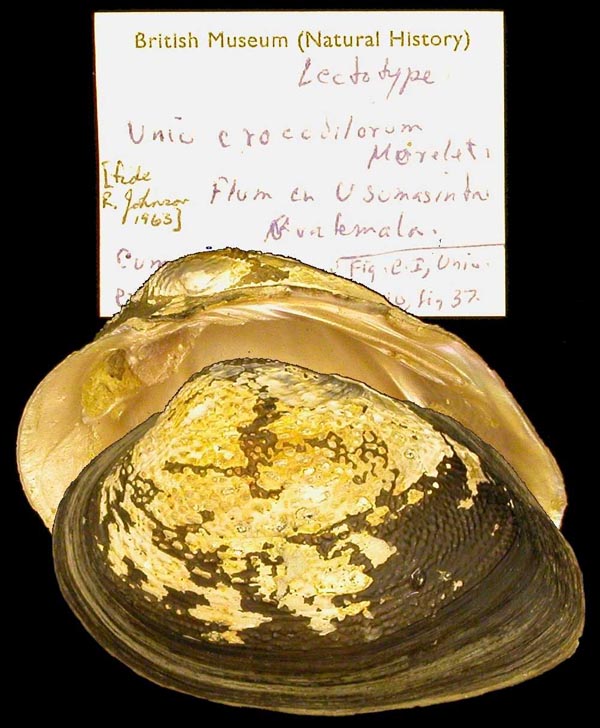 British Museum (Natural History)
Lectotype
Unio crocodilorum
Morelet.
[fide
R. Johnson
1963]
Flumen Usumasinta
Guatemala.
Cum
Fig. e. I, Unio.
fig 37.